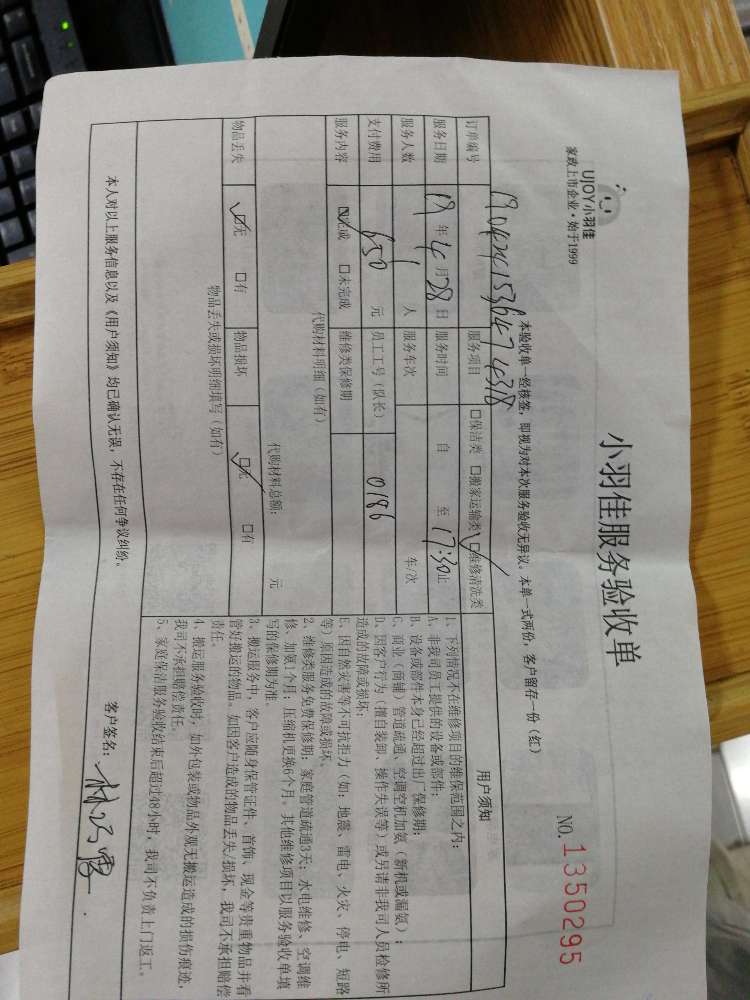 UJOY小羽佳
家政上市企业·始于1999
小羽佳服务验收单
NO. 1350295
本验收单一经核签，即视为对本次服务验收无异议。本单一式两份，客户留存一份（红）
订单编号 1904241536474318 服务项目 □保洁类 □搬家运输类 ☑维修清洗类
服务日期 19年4月28日 服务时间 自 至17:30止
服务人数 1人 服务车次 车/次
支付费用 650元 员工工号（队长） 0186
服务内容 ☑完成 □未完成 维修类保修期
代购材料明细（如有）
代购材料总额： 元
物品丢失 ☑无 □有 物品损坏 ☑无 □有
物品丢失或损坏明细填写（如有）
用户须知
1、下列情况不在维修项目的维保范围之内：
A、非我司员工提供的设备或部件；
B、设备或部件本身已经超过出厂保修期；
C、商业（商铺）管道疏通、空调空机加氨（新机或漏氨）；
D、因客户行为（擅自装卸、操作失误等）或另请非我司人员检修所
造成的故障或损坏；
E、因自然灾害等不可抗拒力（如：地震、雷电、火灾、停电、短路
等）原因造成的故障或损坏。
2、维修类服务免费保修期：家庭管道疏通3天；水电维修、空调维
修、加氨1个月；压缩机更换6个月。其他维修项目以服务验收单填
写的保修期为准
3、搬运服务中，客户应随身保管证件、首饰、现金等贵重物品并看
管好搬运的物品。如因客户造成的物品丢失/损坏，我司不承担赔偿
责任。
4、搬运服务验收时，如外包装或物品外观无搬运造成的损伤痕迹，
我司不承担赔偿责任。
5、家庭保洁服务验收结束后超过48小时，我司不负责上门返工。
本人对以上服务信息以及《用户须知》均已确认无误，不存在任何争议纠纷。
客户签名：